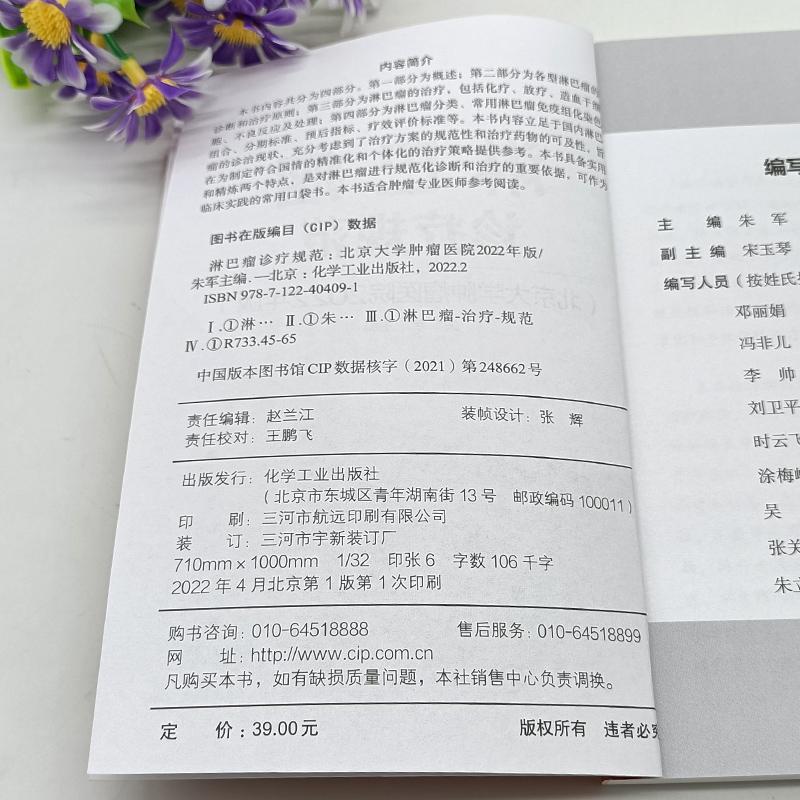 内容简介
本书内容共分为四部分。第一部分为概述；第二部分为各型淋巴瘤的
诊断和治疗原则；第三部分为淋巴瘤的治疗，包括化疗、放疗、造血干细
胞、不良反应及处理；第四部分为淋巴瘤分类、常用淋巴瘤免疫组化染色
组合、分期标准、预后指标、疗效评价标准等。本书内容立足于国内淋巴
瘤的诊治现状，充分考虑到了治疗方案的规范性和治疗药物的可及性，旨
在为制定符合国情的精准化和个体化的治疗策略提供参考。本书具备实用
和精炼两个特点，是对淋巴瘤进行规范化诊断和治疗的重要依据，可作为
临床实践的常用口袋书。本书适合肿瘤专业医师参考阅读。
图书在版编目（CIP）数据
淋巴瘤诊疗规范：北京大学肿瘤医院2022年版/
朱军主编.—北京：化学工业出版社，2022.2
ISBN 978-7-122-40409-1
Ⅰ.①淋… Ⅱ.①朱… Ⅲ.①淋巴瘤-治疗-规范
Ⅳ.①R733.45-65
中国版本图书馆CIP数据核字（2021）第248662号
责任编辑：赵兰江 装帧设计：张 辉
责任校对：王鹏飞
出版发行：化学工业出版社
（北京市东城区青年湖南街13号 邮政编码100011）
印 刷：三河市航远印刷有限公司
装 订：三河市宇新装订厂
710mm×1000mm 1/32 印张6 字数106千字
2022年4月北京第1版第1次印刷
购书咨询：010-64518888 售后服务：010-64518899
网 址：http://www.cip.com.cn
凡购买本书，如有缺损质量问题，本社销售中心负责调换。
定 价：39.00元 版权所有 违者必究
编写
主 编 朱 军
副主编 宋玉琴
编写人员（按姓氏
邓丽娟
冯非儿
李 帅
刘卫平
时云飞
涂梅峰
吴
张关
朱立